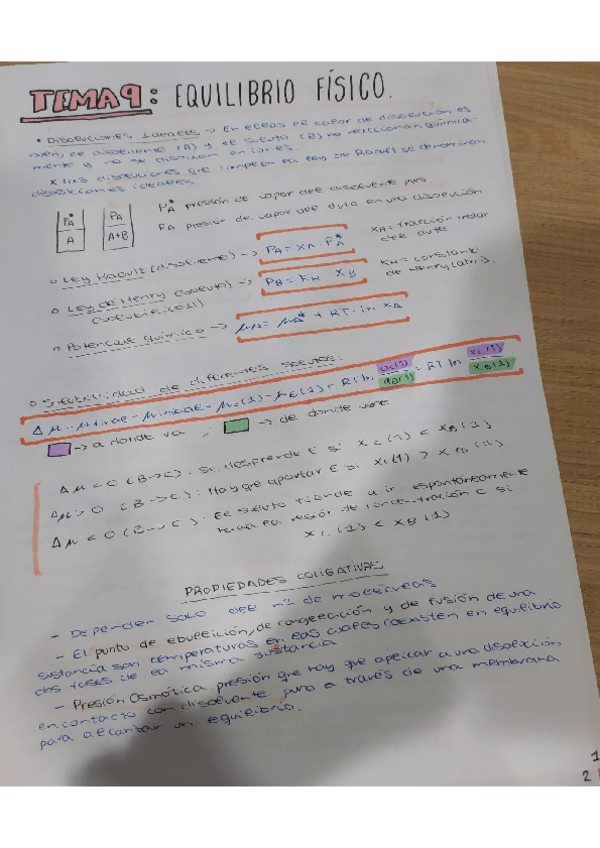 TEMA 9: EQUILIBRIO FÍSICO.
• Disoluciones Ideales → En ellas el calor de disolución es
nulo, el disolvente (A) y el soluto (B) no reaccionan química-
mente y no se disocian en iones.
* Las disoluciones que cumplen la ley de Raoult se denominan
disoluciones ideales.
PA* PA PA* presión de vapor del disolvente puro
A A+B PA presión de vapor del dvte en una disolución
o Ley Raoult (disolvente) → PA = XA · PA* XA = fracción molar
del dvte
o Ley de Henry (soluto) → PB = KH · XB KH = constante
de Henry (atm).
o Potencial químico → μA = μA* + RT · ln XA
o de diferentes solutos:
Δμ = μfinal - μinicial = μC(1) - μB(1) = RT ln aC(1)/aB(1) = RT ln XC(1)/XB(1)
→ a donde va , → de donde viene
Δμ < 0 (B → C): Se desprende E si XC(1) < XB(1)
Δμ > 0 (B → C): Hay que aportar E si XC(1) > XB(1)
Δμ < 0 (B → C): El soluto tiende a ir espontáneamente
hacia la región de concentración C si
XC(1) < XB(1)
PROPIEDADES COLIGATIVAS
- Dependen solo del nº de moléculas
- El punto de ebullición, de congelación y de fusión de una
sustancia son temperaturas en las cuales coexisten en equilibrio
dos fases de la misma sustancia
- Presión Osmótica presión que hay que aplicar a una disolución
en contacto con disolvente puro a través de una membrana
para alcanzar un equilibrio.
1
2